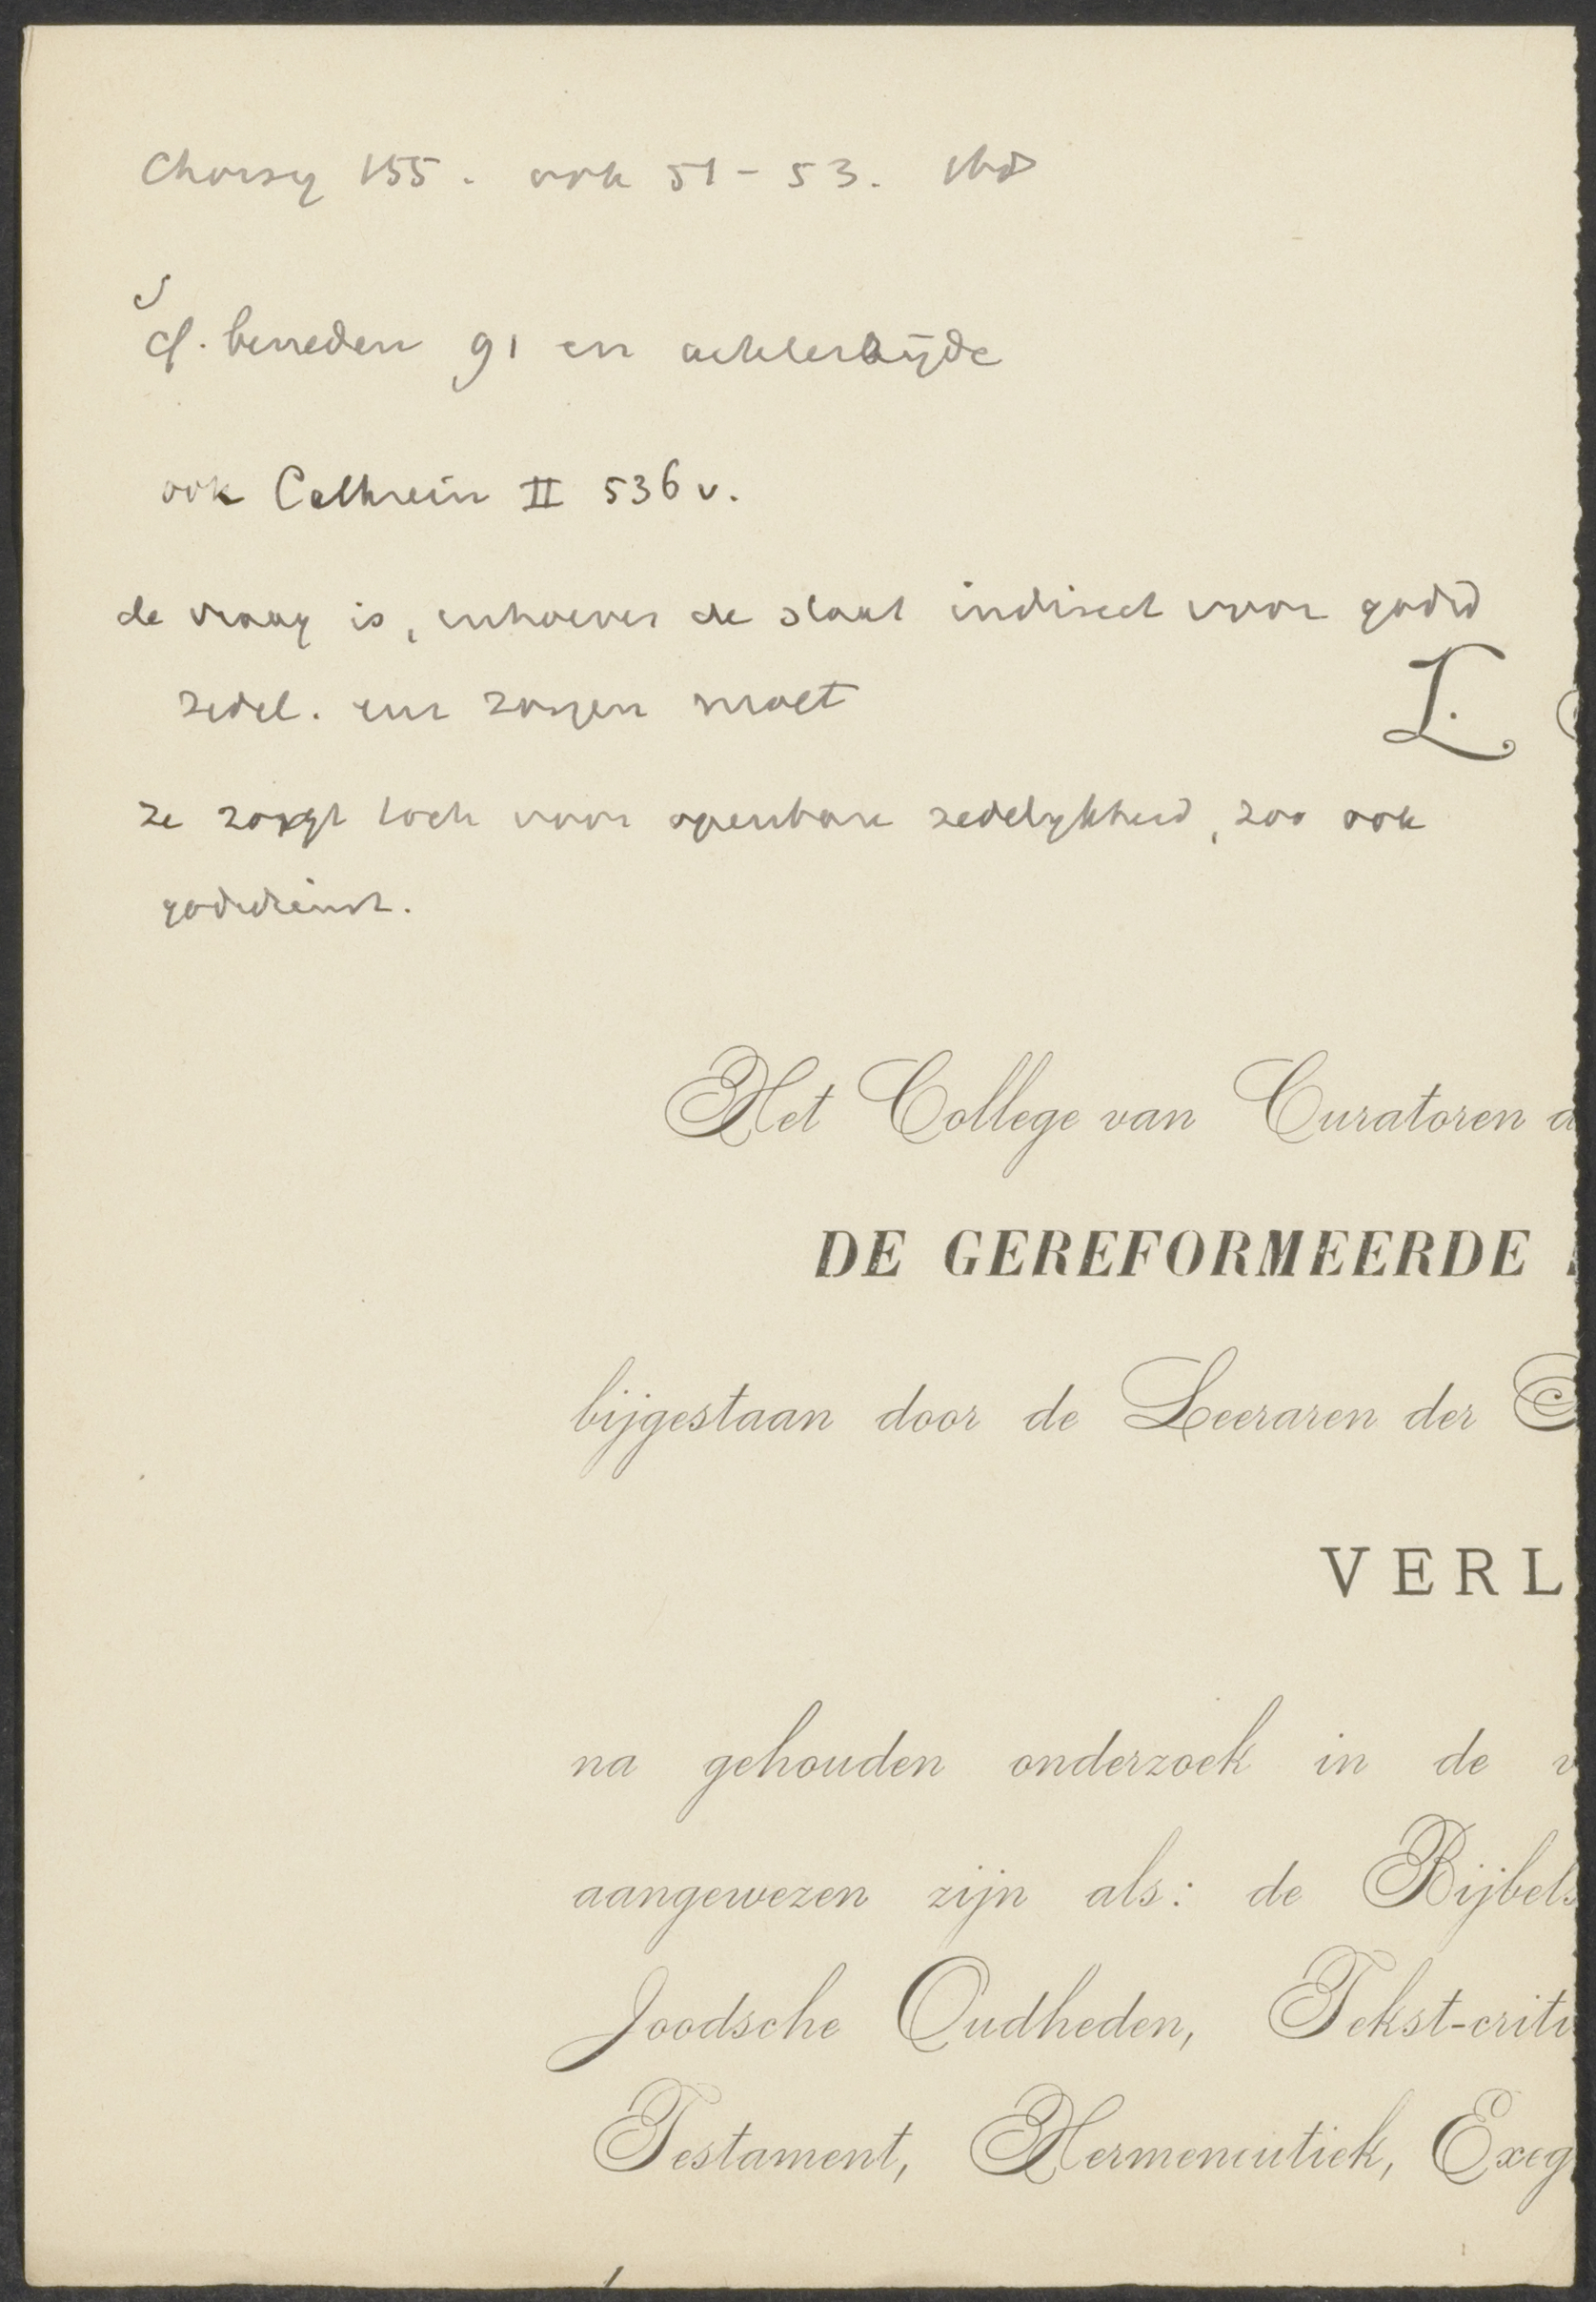 Choisy 155. ook 51-53. ibid
cf. beneden 91 en achterzijde
ook Cathrein II 536 v.
de vraag is, inhoever de staat indirect voor godsd
zedel. enz zorgen moet
L.
ze zorgt toch voor openbare zedelykheid, zoo ook
godsdienst.
Het College van Curatoren
DE GEREFORMEERDE
bijgestaan door de Leeraren der
VERL
na gehouden onderzoek in de v
aangewezen zijn als: de Bijbels
Joodsche Oudheden, Tekst-criti
Testament, Hermeneutiek, Exeg